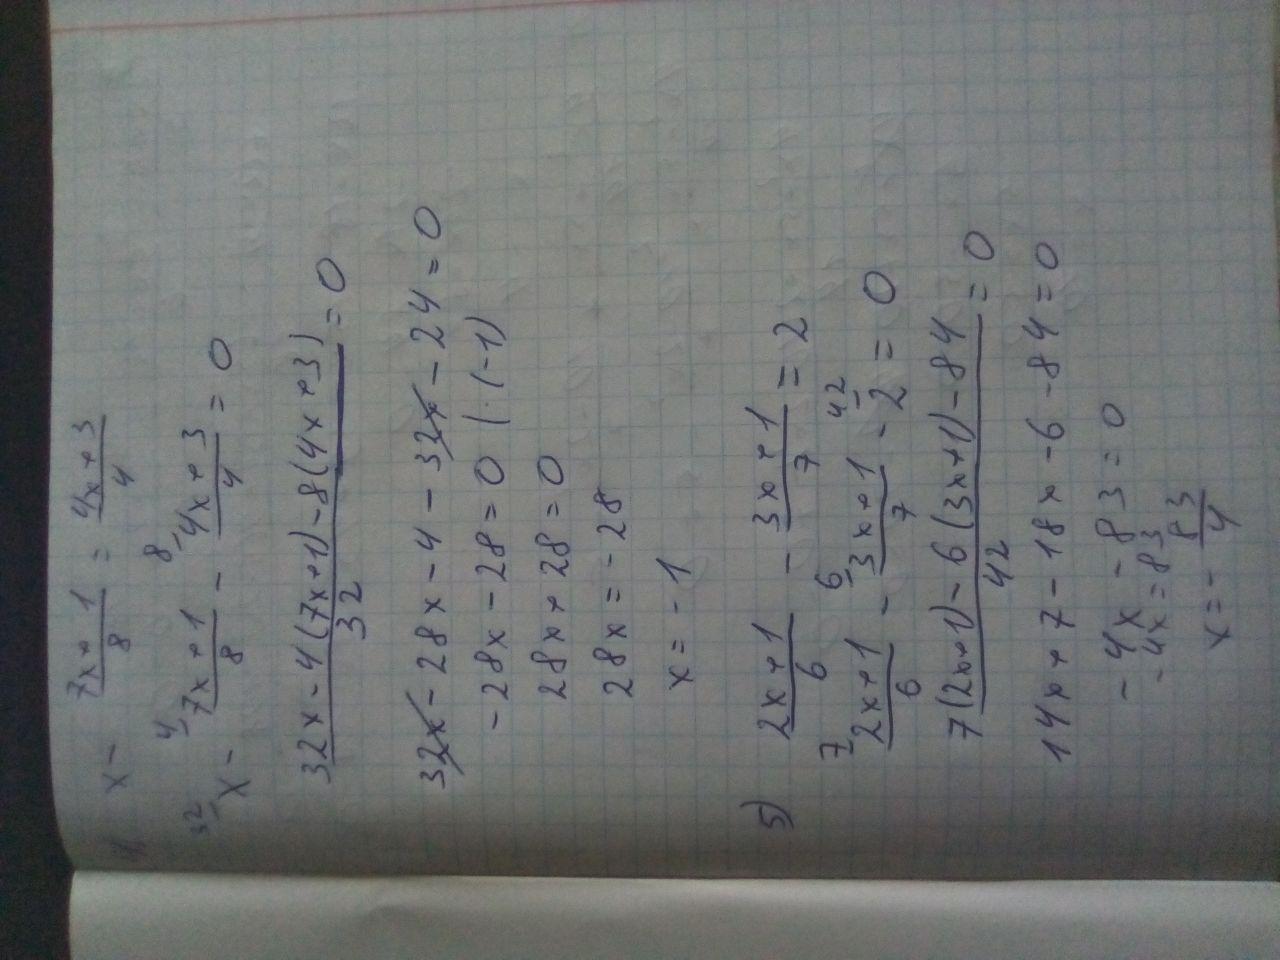 4) x - (7x+1)/8 = (4x+3)/4
32/ x - 4/ (7x+1)/8 - 8/ (4x+3)/4 = 0
(32x - 4(7x+1) - 8(4x+3))/32 = 0
32x - 28x - 4 - 32x - 24 = 0
-28x - 28 = 0 | · (-1)
28x + 28 = 0
28x = -28
x = -1
5) (2x+1)/6 - (3x+1)/7 = 2
7/ (2x+1)/6 - 6/ (3x+1)/7 - 42/ 2 = 0
(7(2x+1) - 6(3x+1) - 84)/42 = 0
14x + 7 - 18x - 6 - 84 = 0
-4x - 83 = 0
-4x = 83
x = - 83/4